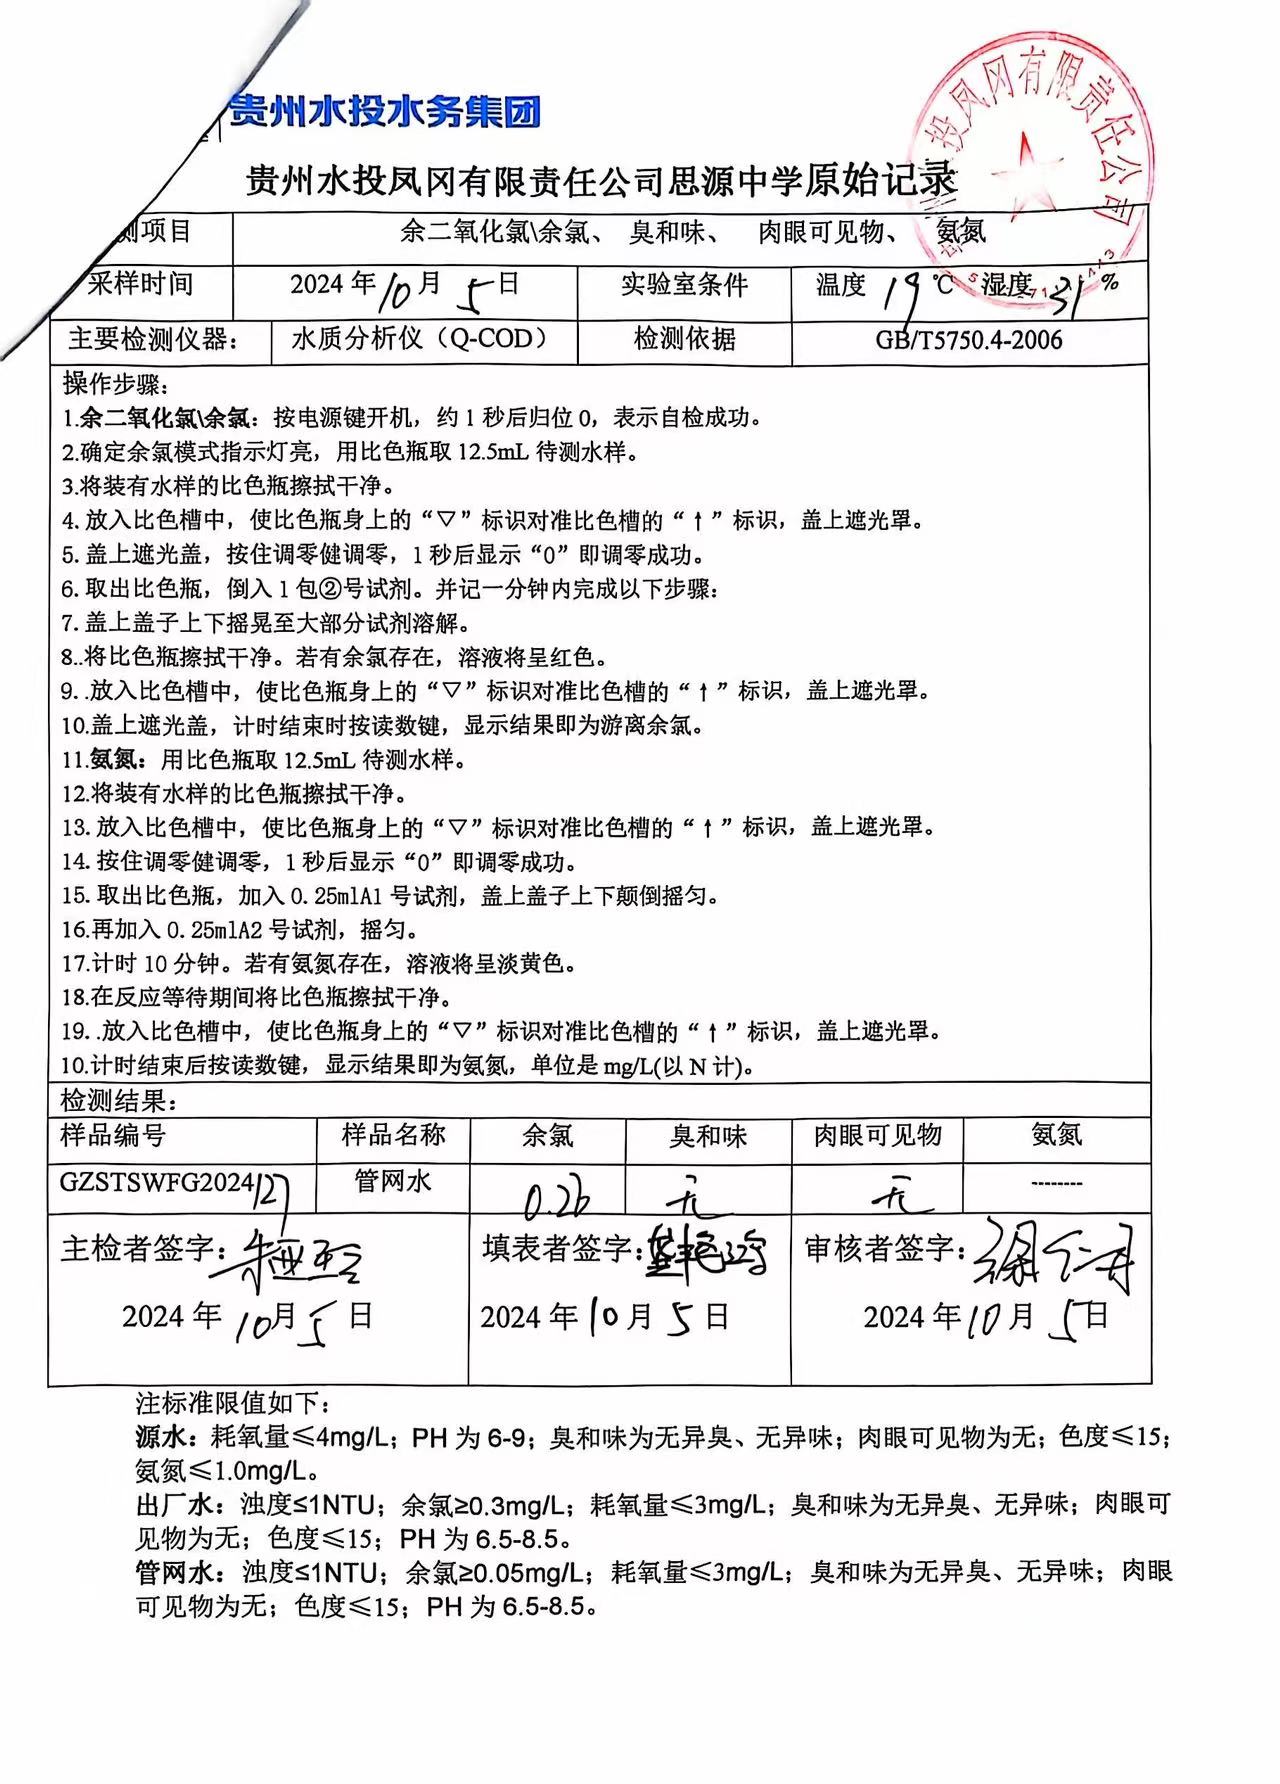 贵州水投水务集团
投凤冈有限责任公司
贵州水投凤冈有限责任公司思源中学原始记录
测项目 余二氧化氯\余氯、 臭和味、 肉眼可见物、 氨氮
采样时间 2024年10月5日 实验室条件 温度 19℃ 湿度 31%
主要检测仪器： 水质分析仪（Q-COD） 检测依据 GB/T5750.4-2006
操作步骤：
1.余二氧化氯\余氯：按电源键开机，约1秒后归位0，表示自检成功。
2.确定余氯模式指示灯亮，用比色瓶取12.5mL待测水样。
3.将装有水样的比色瓶擦拭干净。
4. 放入比色槽中，使比色瓶身上的“▽”标识对准比色槽的“↑”标识，盖上遮光罩。
5. 盖上遮光盖，按住调零健调零，1秒后显示“0”即调零成功。
6. 取出比色瓶，倒入1包②号试剂。并记一分钟内完成以下步骤：
7. 盖上盖子上下摇晃至大部分试剂溶解。
8..将比色瓶擦拭干净。若有余氯存在，溶液将呈红色。
9. .放入比色槽中，使比色瓶身上的“▽”标识对准比色槽的“↑”标识，盖上遮光罩。
10.盖上遮光盖，计时结束时按读数键，显示结果即为游离余氯。
11.氨氮：用比色瓶取12.5mL待测水样。
12.将装有水样的比色瓶擦拭干净。
13. 放入比色槽中，使比色瓶身上的“▽”标识对准比色槽的“↑”标识，盖上遮光罩。
14. 按住调零健调零，1秒后显示“0”即调零成功。
15. 取出比色瓶，加入0.25mlA1号试剂，盖上盖子上下颠倒摇匀。
16.再加入0.25mlA2号试剂，摇匀。
17.计时10分钟。若有氨氮存在，溶液将呈淡黄色。
18.在反应等待期间将比色瓶擦拭干净。
19. .放入比色槽中，使比色瓶身上的“▽”标识对准比色槽的“↑”标识，盖上遮光罩。
10.计时结束后按读数键，显示结果即为氨氮，单位是mg/L(以N计)。
检测结果：
样品编号 样品名称 余氯 臭和味 肉眼可见物 氨氮
GZSTSWFG2024127 管网水 0.26 无 无 --------
主检者签字： 填表者签字： 审核者签字：
2024年10月5日 2024年10月5日 2024年10月5日
注标准限值如下：
源水：耗氧量≤4mg/L；PH为6-9；臭和味为无异臭、无异味；肉眼可见物为无；色度≤15；
氨氮≤1.0mg/L。
出厂水：浊度≤1NTU；余氯≥0.3mg/L；耗氧量≤3mg/L；臭和味为无异臭、无异味；肉眼可
见物为无；色度≤15；PH为6.5-8.5。
管网水：浊度≤1NTU；余氯≥0.05mg/L；耗氧量≤3mg/L；臭和味为无异臭、无异味；肉眼
可见物为无；色度≤15；PH为6.5-8.5。